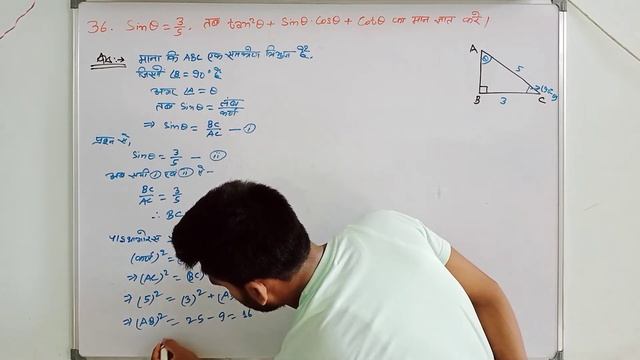 36. Sinθ = 3/5. तब tan²θ + Sinθ·Cosθ + Cotθ का मान ज्ञात करें।
हल:→ माना कि ABC एक समकोण त्रिभुज है।
जिसमें ∠B = 90° है
अगर ∠A = θ
तब Sinθ = लम्ब/कर्ण
⇒ Sinθ = BC/AC — ①
प्रश्न से,
Sinθ = 3/5 — ②
अब समी० ① एवं ② से -
BC/AC = 3/5
∴ BC
पाइथागोरस
(कर्ण)² =
⇒ (AC)² = (BC)
⇒ (5)² = (3)² + (A
⇒ (AB)² = 25 - 9 = 16
A
θ
5
B
3
C